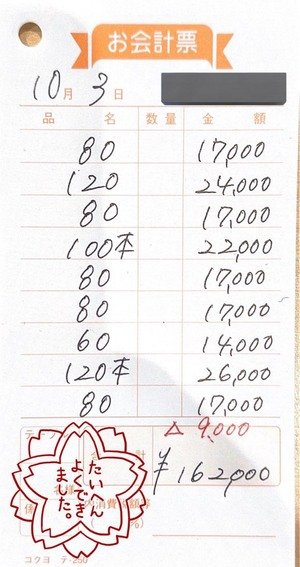 お会計票
10月3日
品名 数量 金額
80 17,000
120 24,000
80 17,000
100本 22,000
80 17,000
80 17,000
60 14,000
120本 26,000
80 17,000
△ 9,000
計 ¥162,000
たいへん
よくでき
ました。
係
内消費税額等
%)
コクヨ テ-250